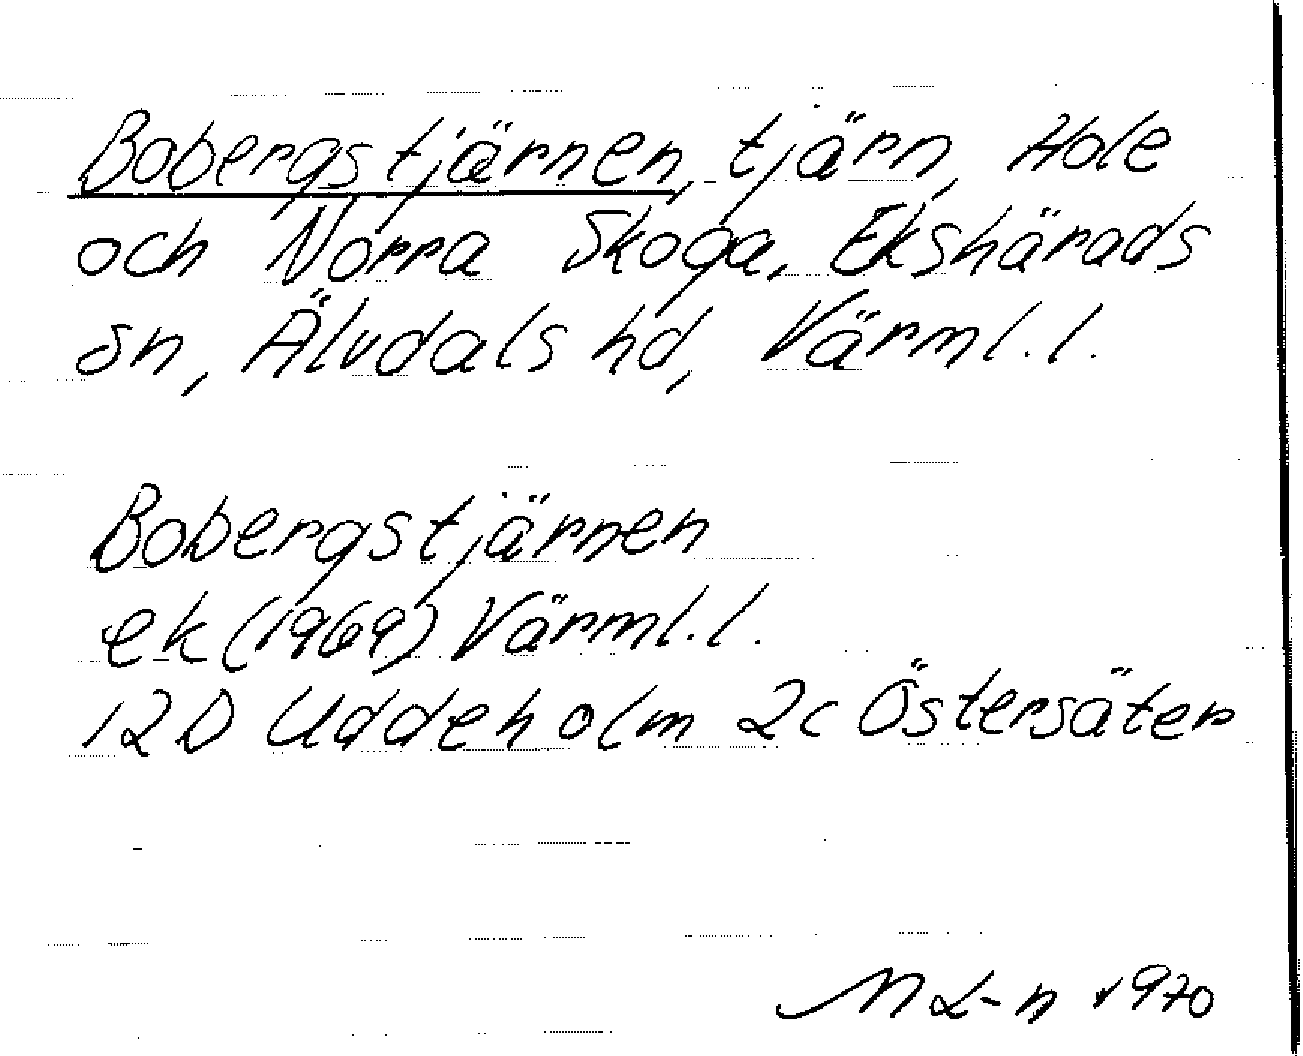 Bobergstjärnen, tjärn, Hole
och Norra Skoga, Ekshärads
sn, Älvdals hd, Värml.l.
Bobergstjärnen
ek (1969) Värml.l.
12D Uddeholm 2c Östersäter
M L-n 1970